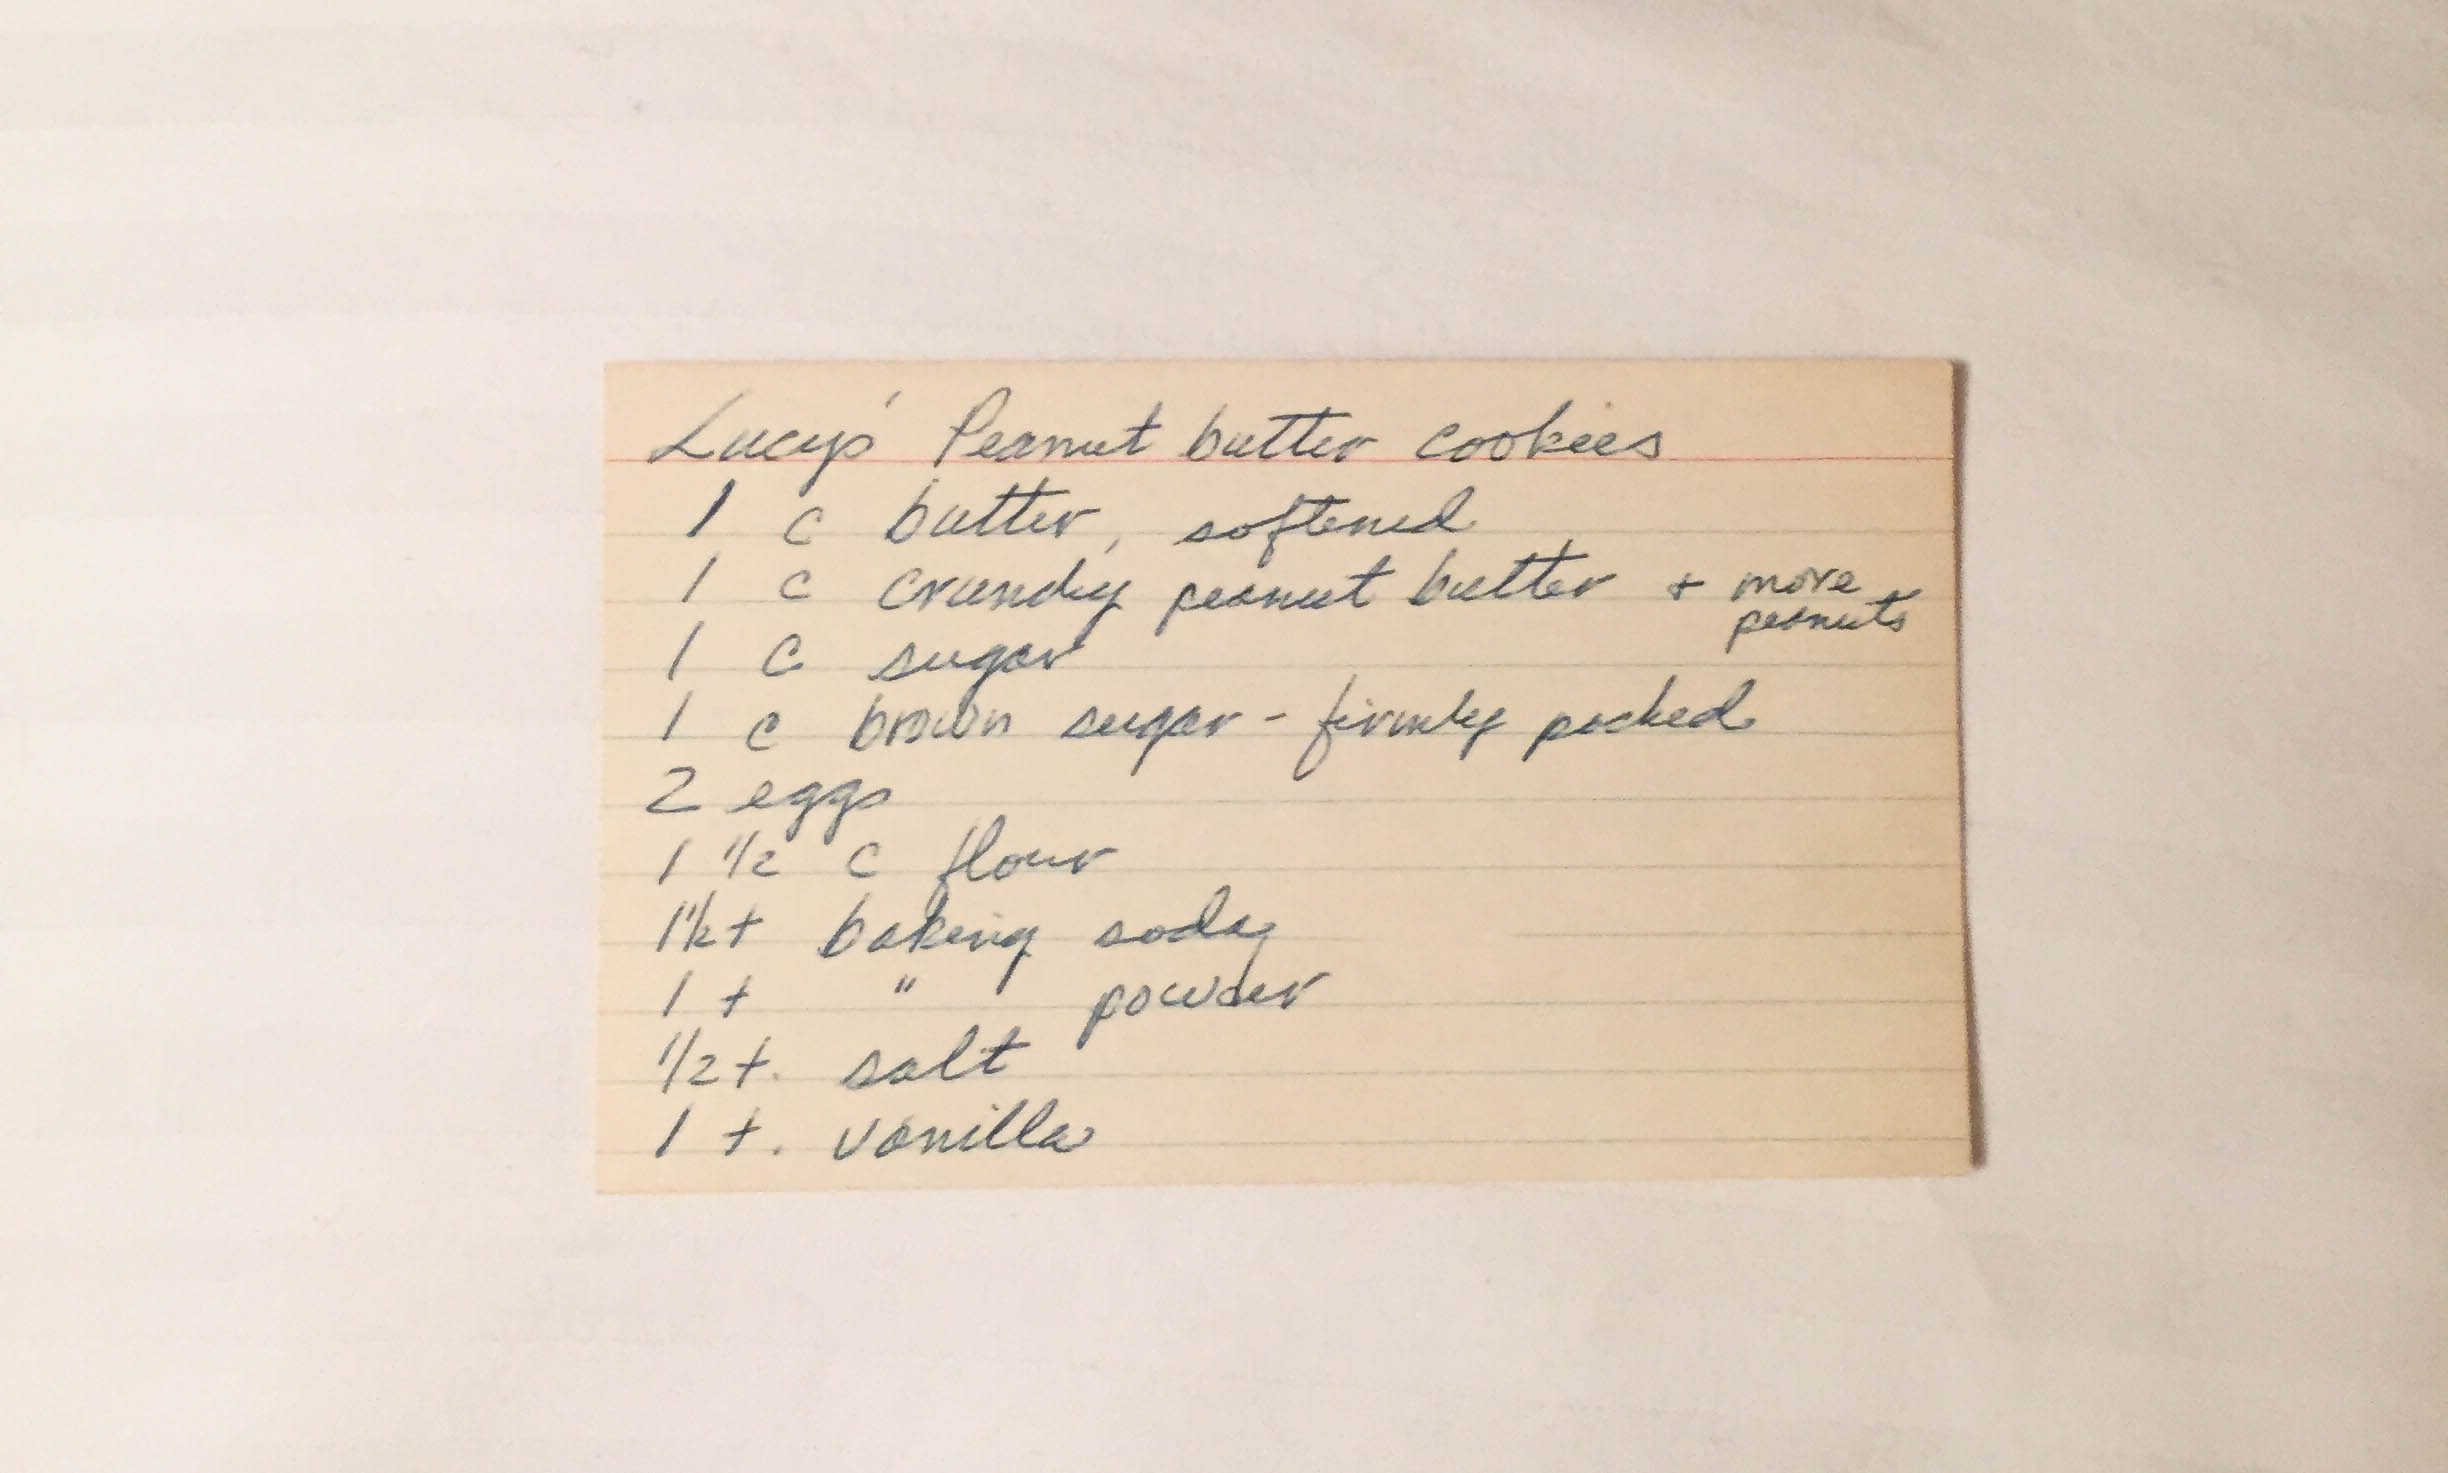 Lucy's Peanut butter cookies
1 c butter, softened
1 c crunchy peanut butter + more peanuts
1 c sugar
1 c brown sugar - firmly packed
2 eggs
1 1/2 c flour
1 1/2 t baking soda
1 t " powder
1/2 t. salt
1 t. vanilla